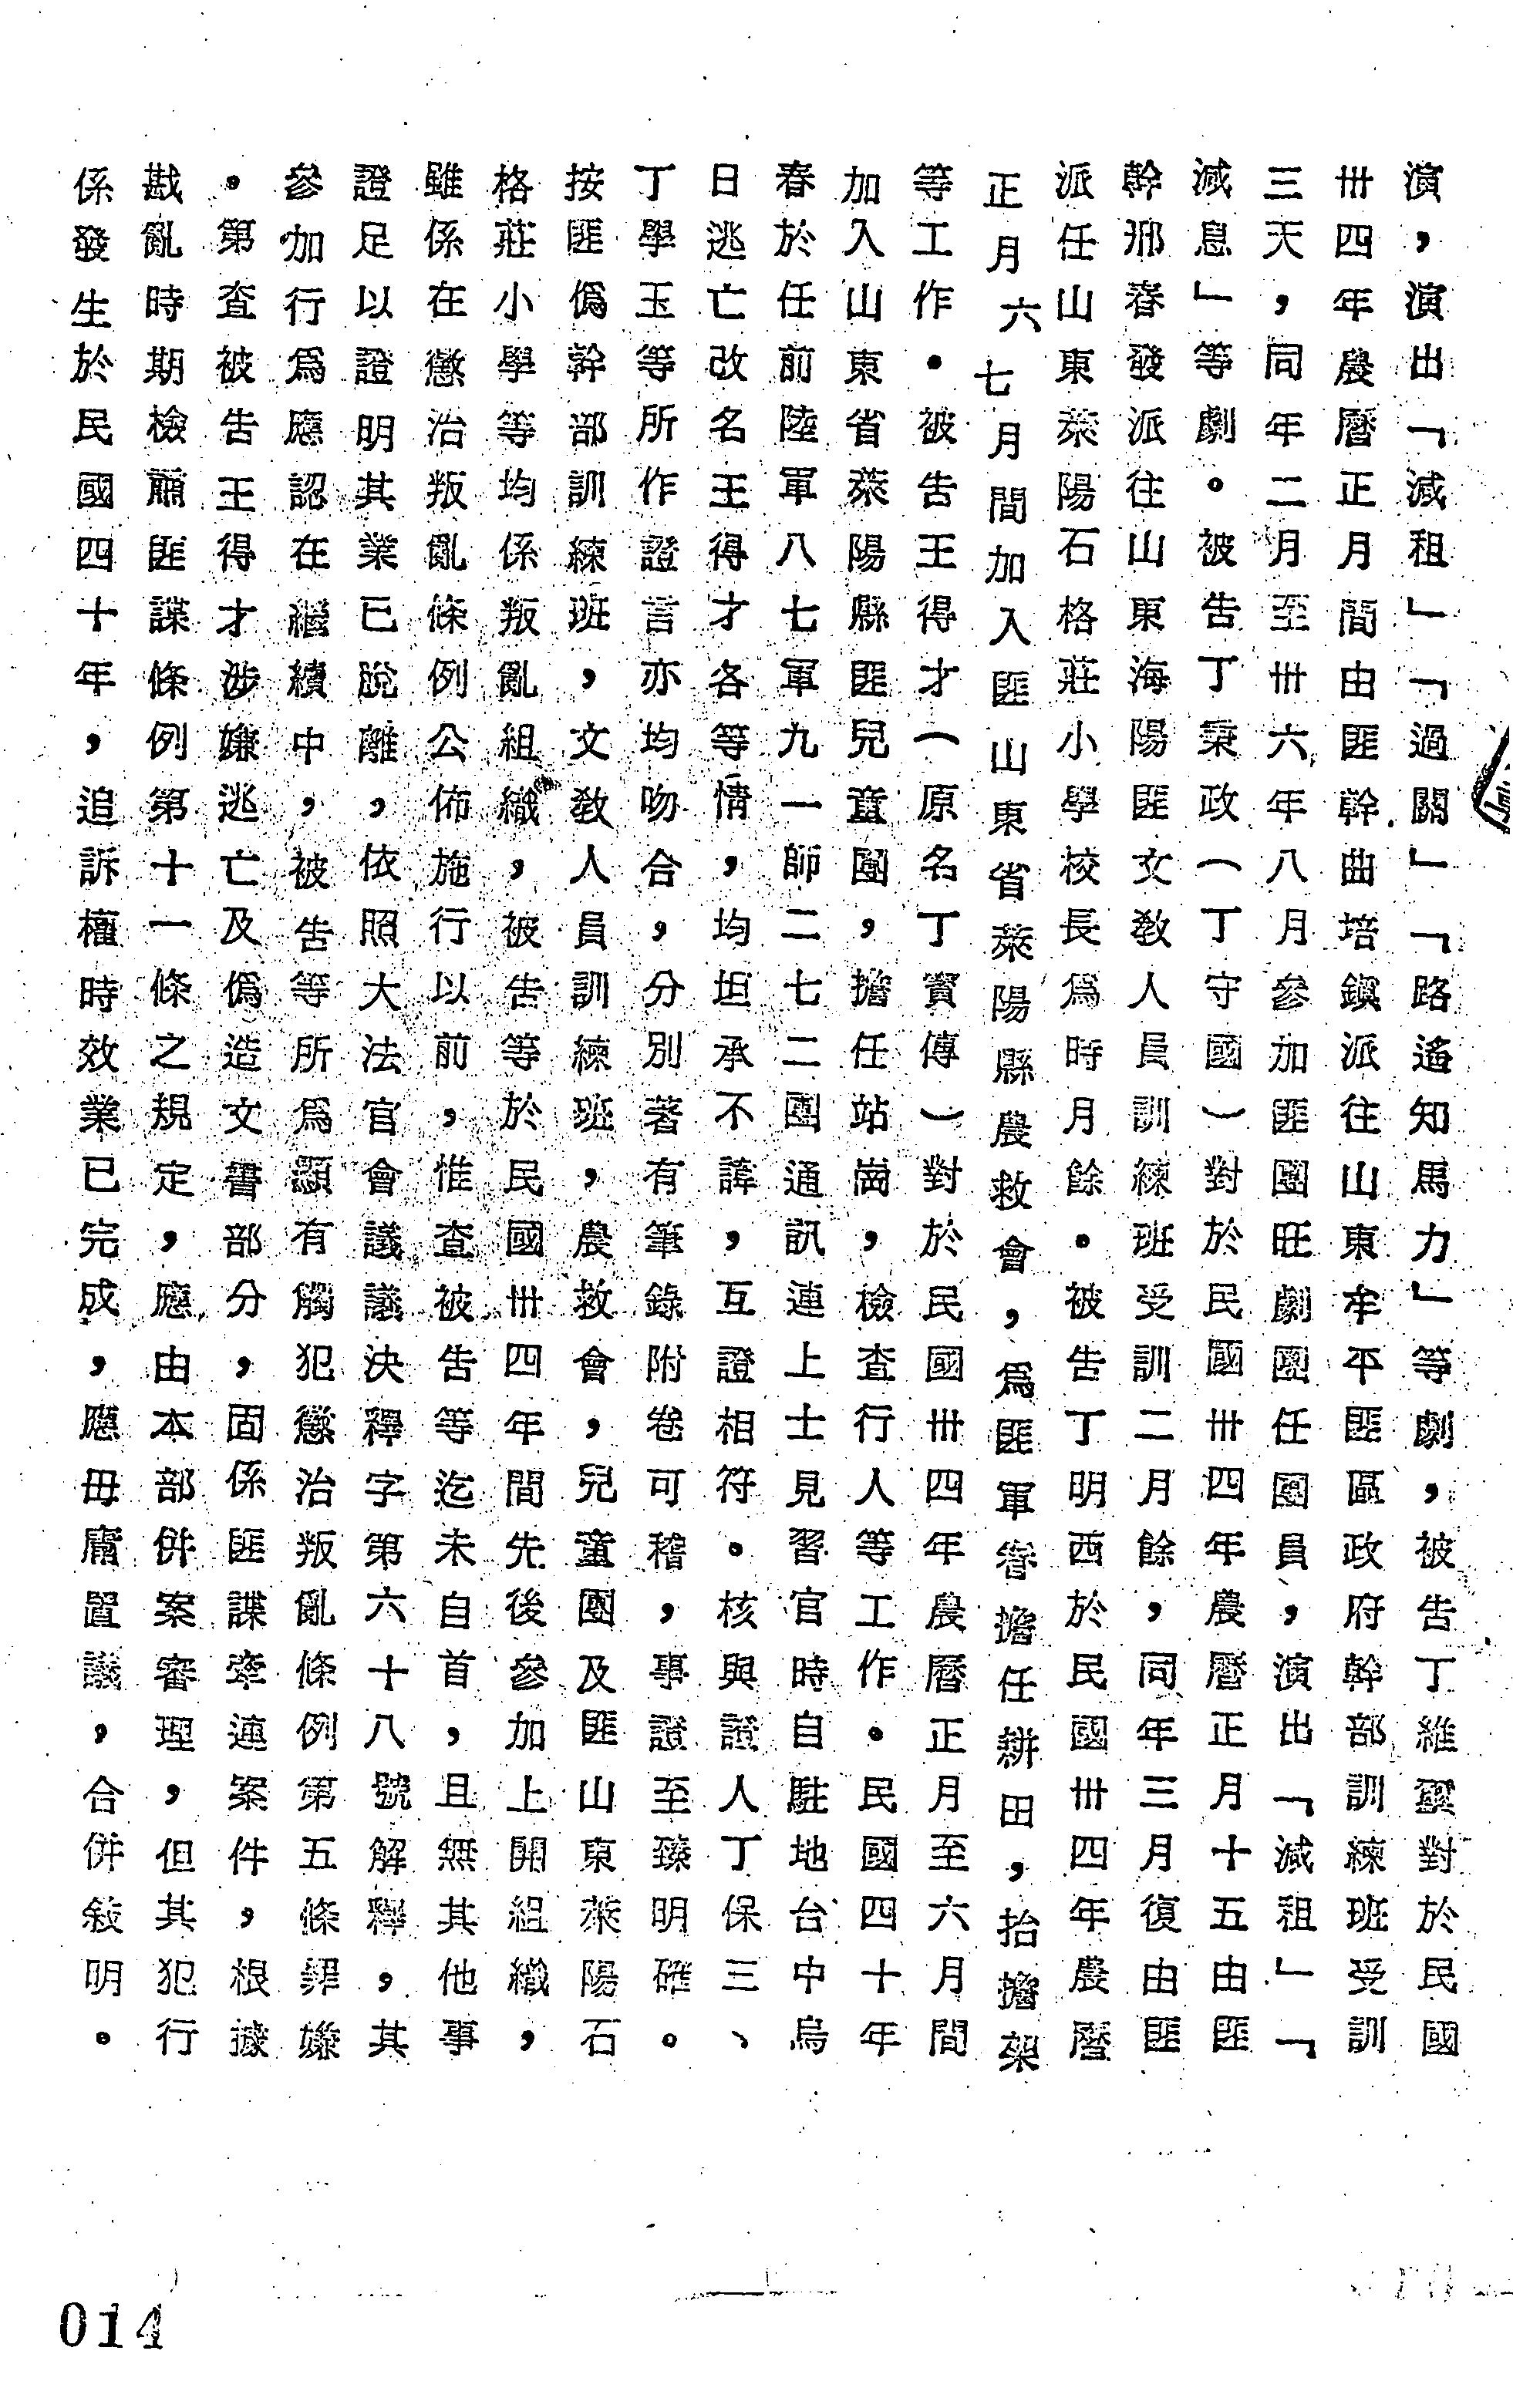 演，演出「減租」「過關」「路遙知馬力」等劇，被告丁維寶對於民國
卅四年農曆正月間由匪幹曲培鎮派往山東牟平匪區政府幹部訓練班受訓
三天，同年二月至卅六年八月參加匪團旺劇團任團員，演出「減租」「
減息」等劇。被告丁秉政（丁守國）對於民國卅四年農曆正月十五由匪
幹邢春發派往山東海陽匪文教人員訓練班受訓二月餘，同年三月復由匪
派任山東萊陽石格莊小學校長為時月餘。被告丁明西於民國卅四年農曆
正月六七月間加入匪山東省萊陽縣農救會，為匪軍眷擔任耕田，抬擔架
等工作。被告王得才（原名丁寶傳）對於民國卅四年農曆正月至六月間
加入山東省萊陽縣匪兒童團，擔任站崗，檢查行人等工作。民國四十年
春於任前陸軍八七軍九一師二七二團通訊連上士見習官時自駐地台中烏
日逃亡改名王得才各等情，均坦承不諱，互證相符。核與證人丁保三、
丁學玉等所作證言亦均吻合，分別著有筆錄附卷可稽，事證至臻明確。
按匪偽幹部訓練班，文教人員訓練班，農救會，兒童團及匪山東萊陽石
格莊小學等均係叛亂組織，被告等於民國卅四年間先後參加上開組織，
雖係在懲治叛亂條例公佈施行以前，惟查被告等迄未自首，且無其他事
證足以證明其業已脫離，依照大法官會議議決釋字第六十八號解釋，其
參加行為應認在繼續中，被告等所為顯有觸犯懲治叛亂條例第五條罪嫌
。第查被告王得才涉嫌逃亡及偽造文書部分，固係匪諜牽連案件，根據
戡亂時期檢肅匪諜條例第十一條之規定，應由本部併案審理，但其犯行
係發生於民國四十年，追訴權時效業已完成，應毋庸置議，合併敍明。
014